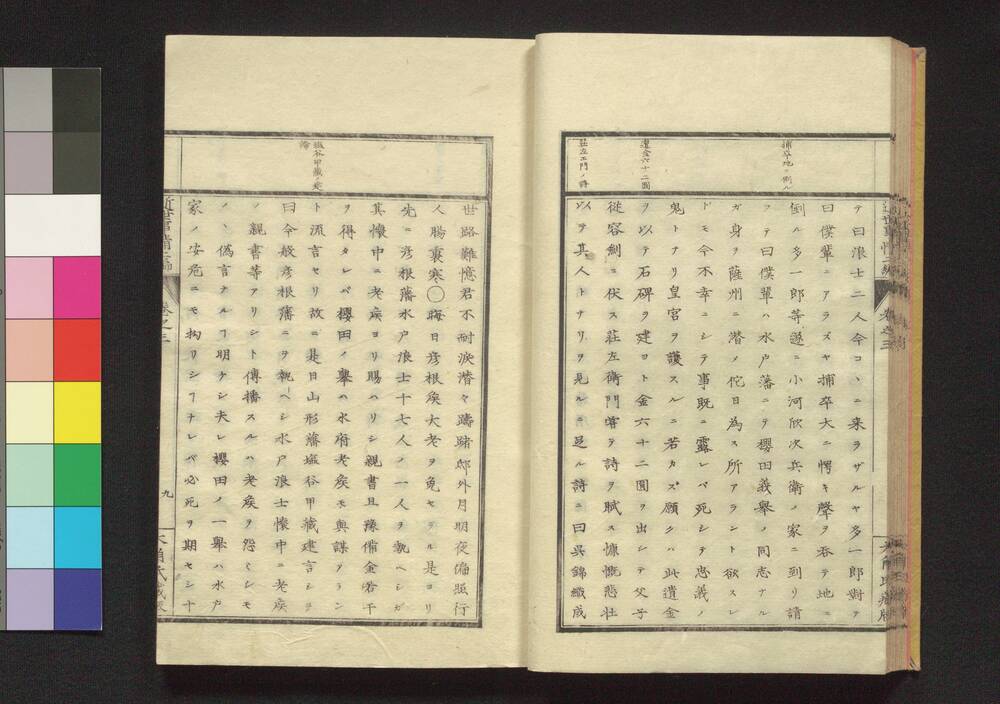 捕卒地ニ倒ル
遺金六十二圓
荘左エ門ノ詩
テ曰浪士二人今コヽニ来ラザルヤ多一郎對テ
曰僕輩ニアラズヤ捕卒大ニ愕キ聲ヲ呑テ地ニ
倒ル多一郎等遂ニ小河欣次兵衛ノ家ニ到リ請
フテ曰僕輩ハ水户藩ニテ櫻田義舉ノ同志ナル
ガ身ヲ薩州ニ潜メ佗日為ス所アラント欲スレ
ドモ今不幸ニシテ事既ニ露レバ死シテ忠義ノ
鬼トナリ皇宮ヲ護スルニ若カズ願クハ此遺金
ヲ以テ石碑ヲ建ヨト金六十二圓ヲ出シテ父子
従容劍ニ伏ス荘左衛門嘗テ詩ヲ賦ス慷慨悲壮
以テ其人トナリヲ見ルニ足ル詩ニ曰呉錦織成
塩谷甲藏ノ建
論
世路難憶君不耐淚潜々躊躇邸外月明夜偏照行
人腸裏寒〇晦日彦根矦大老ヲ免セラル是ヨリ
先ニ彦根藩水户浪士十七人ノ一人ヲ執ヘシガ
其懐中ニ老矦ヨリ賜ハリシ親書且豫備金若干
ヲ得タレバ櫻田ノ舉ハ水府老矦モ與謀タラン
ト流言セリ故ニ是日山形藩塩谷甲藏建言シテ
曰今般彦根藩ニヲ執ヘシ水户浪士懐中ニ老矦
ノ親書等アリシト傳播スルハ老矦ヲ怨ミシモ
ノヽ偽言ナルヿ明ケシ夫レ櫻田ノ一舉ハ水户
家ノ安危ニモ拘リシヿナレバ必死ヲ期セシ十
卷之三
九